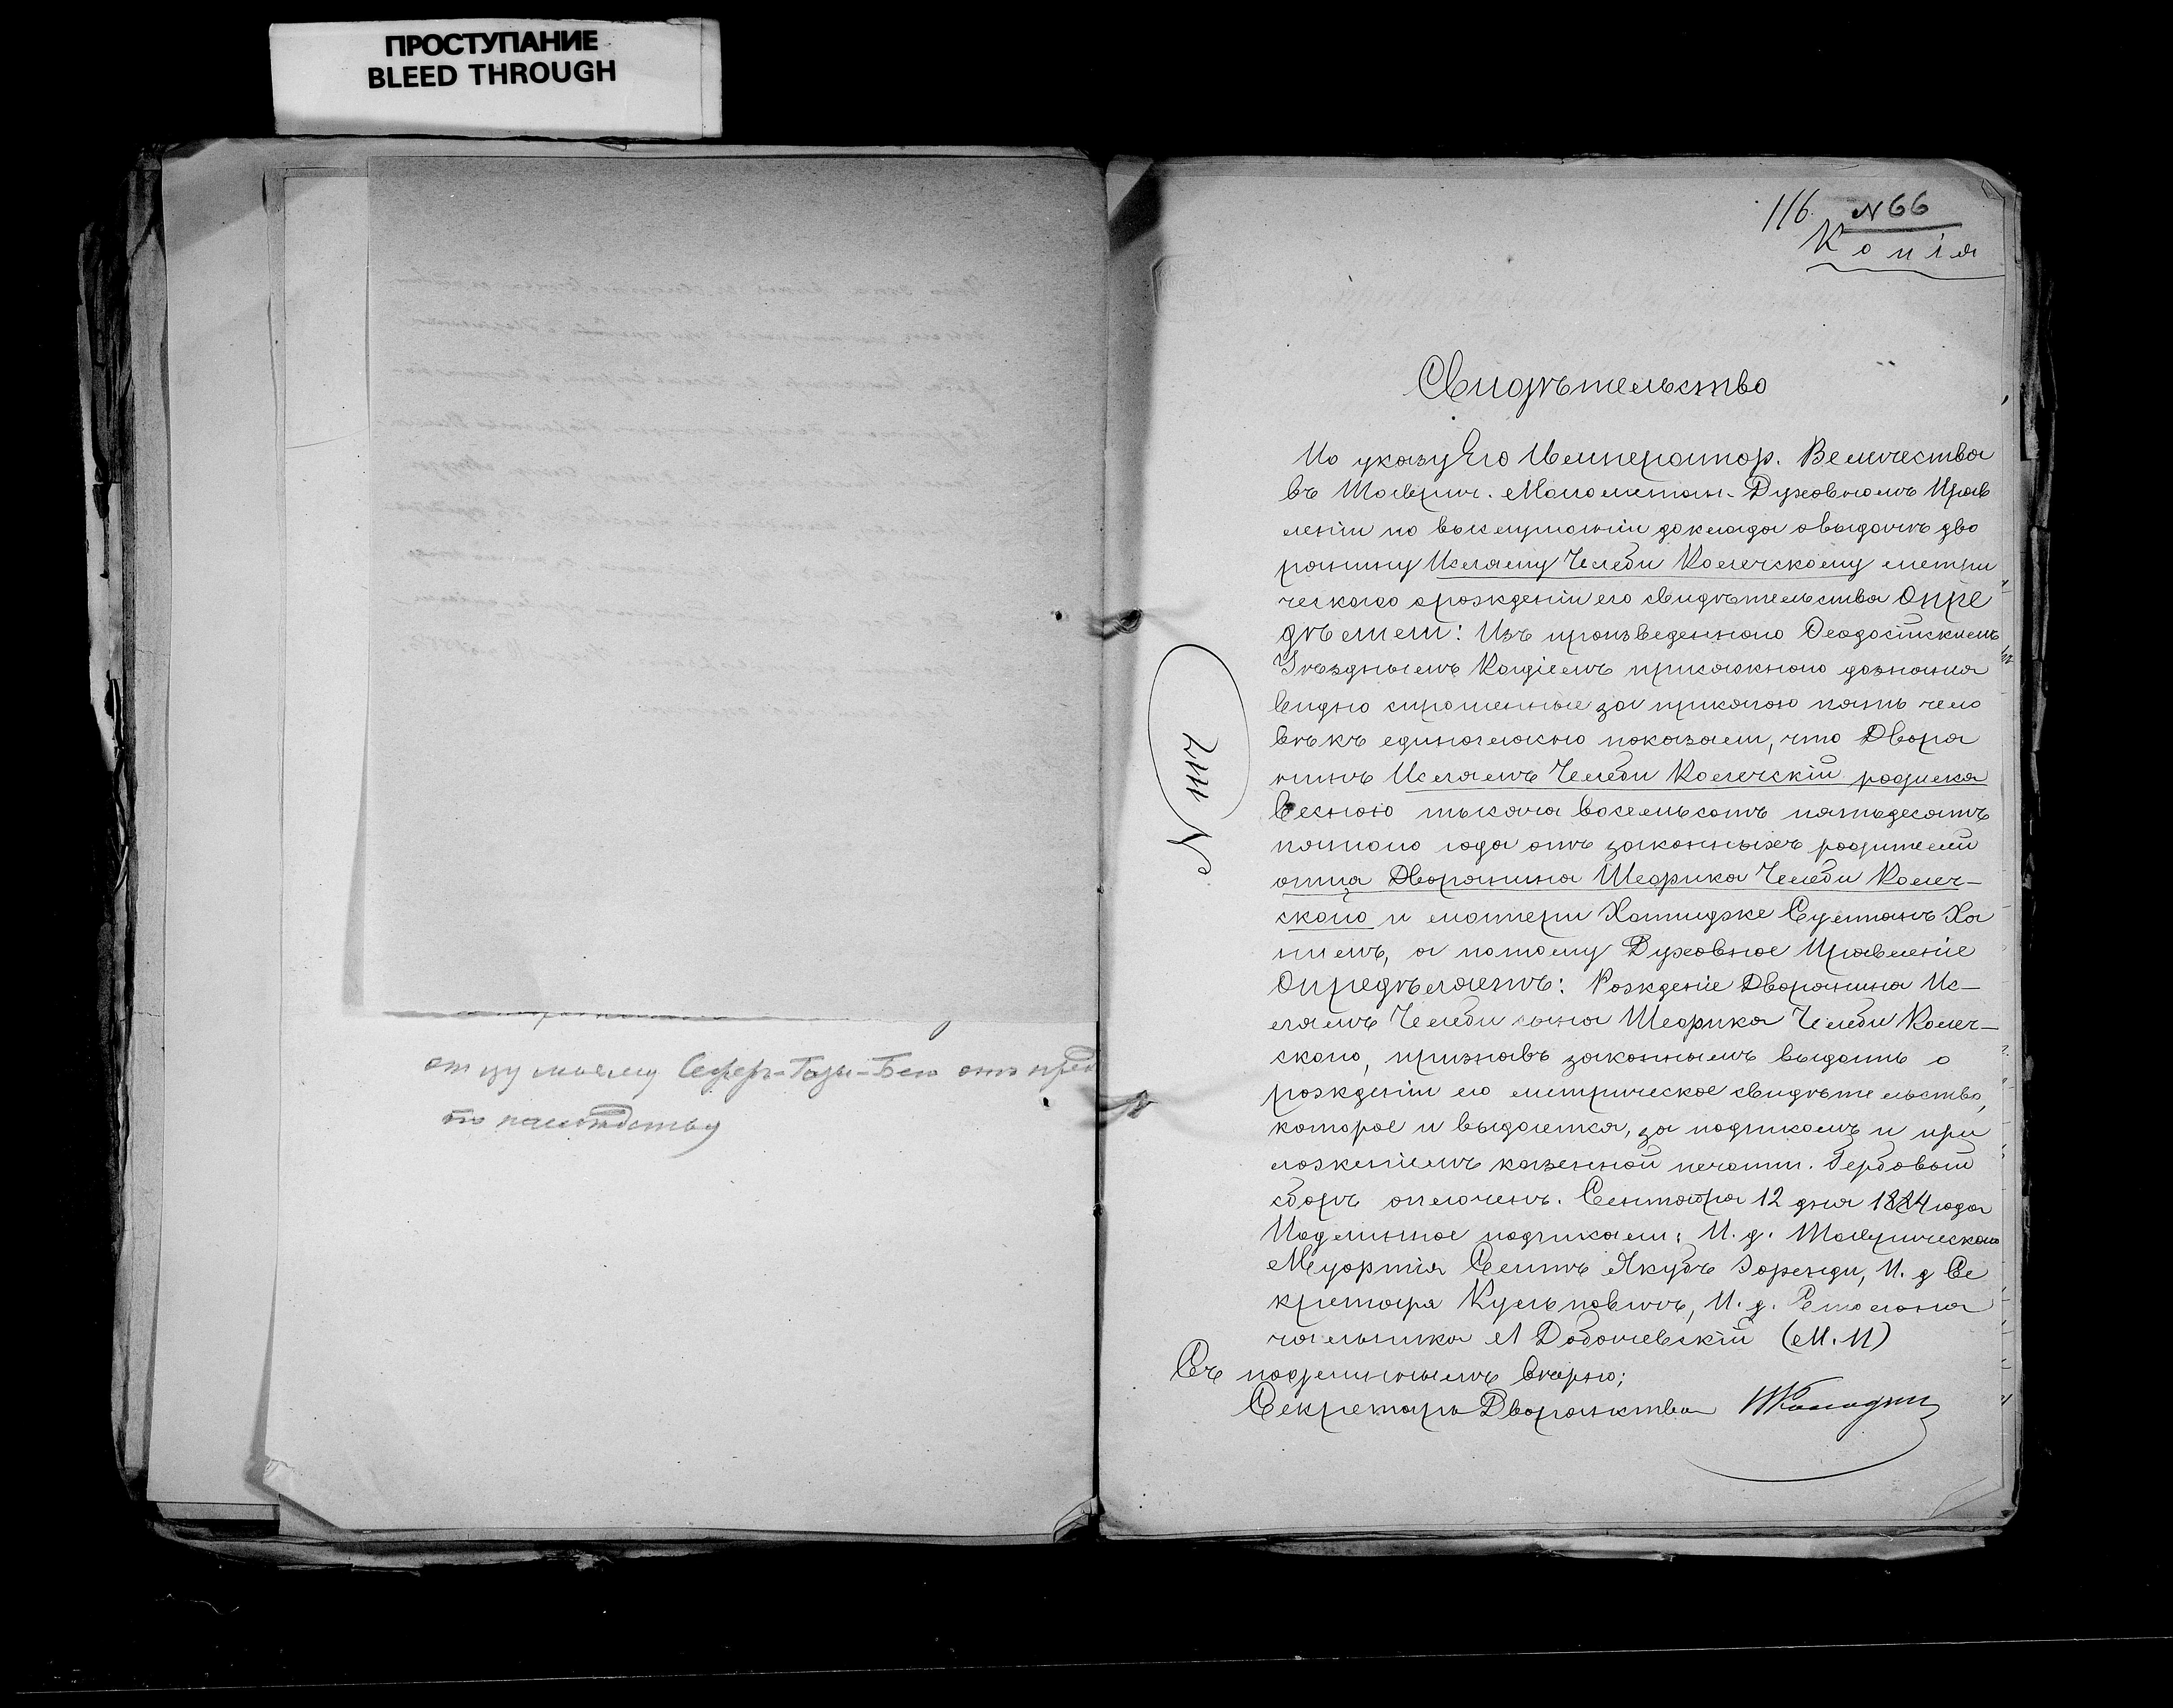 ПРОСТУПАНИЕ
BLEED THROUGH
отцу моему Сефер-Гази-Бею отъ пред
по наслѣдству
116. N 66
Копія
Свидѣтельство
По указу Его Император. Величества
въ Таврич. Магометан. Духовномъ Прав
леніи по выслушаніи доклада о выдачѣ дво
рянину Исляму Челеби Колечскому метри
ческаго о рожденіи его свидѣтельства Опре
дѣлили: Изъ произведеннаго Ѳеодосійскимъ
Уѣзднымъ Кадіемъ присяжнаго дознания
видно спрошенные за присягою пять чело
вѣкъ единогласно показали, что Дворя
нинъ Ислямъ Челеби Колечскій родился
весною тысяча восемьсотъ пятьдесятъ
пятаго года отъ законныхъ родителей
отца Дворянина Шефика Челеби Колеч-
скаго и матери Хатидже Султанъ Ха
нимъ, а потому Духовное Правленіе
Опредѣляетъ: Рожденіе Дворянина Ис-
лямъ Челеби сына Шефика Челеби Колеч-
скаго, признавъ законнымъ выдать о
рожденіи его метрическое свидѣтельство,
которое и выдается, за подписомъ и при
ложеніемъ казенной печати. Гербовый
сборъ оплоченъ. Сентября 12 дня 1884 года
Подлинное подписали: И. д. Таврическаго
Муфтія Сеитъ Якубъ Эфенди, И. д Се
кретаря Кульповичъ, И. д. Столона
чальника А Добачевскій (М. П)
Съ подлиннымъ вѣрно;
Секретарь Дворянства